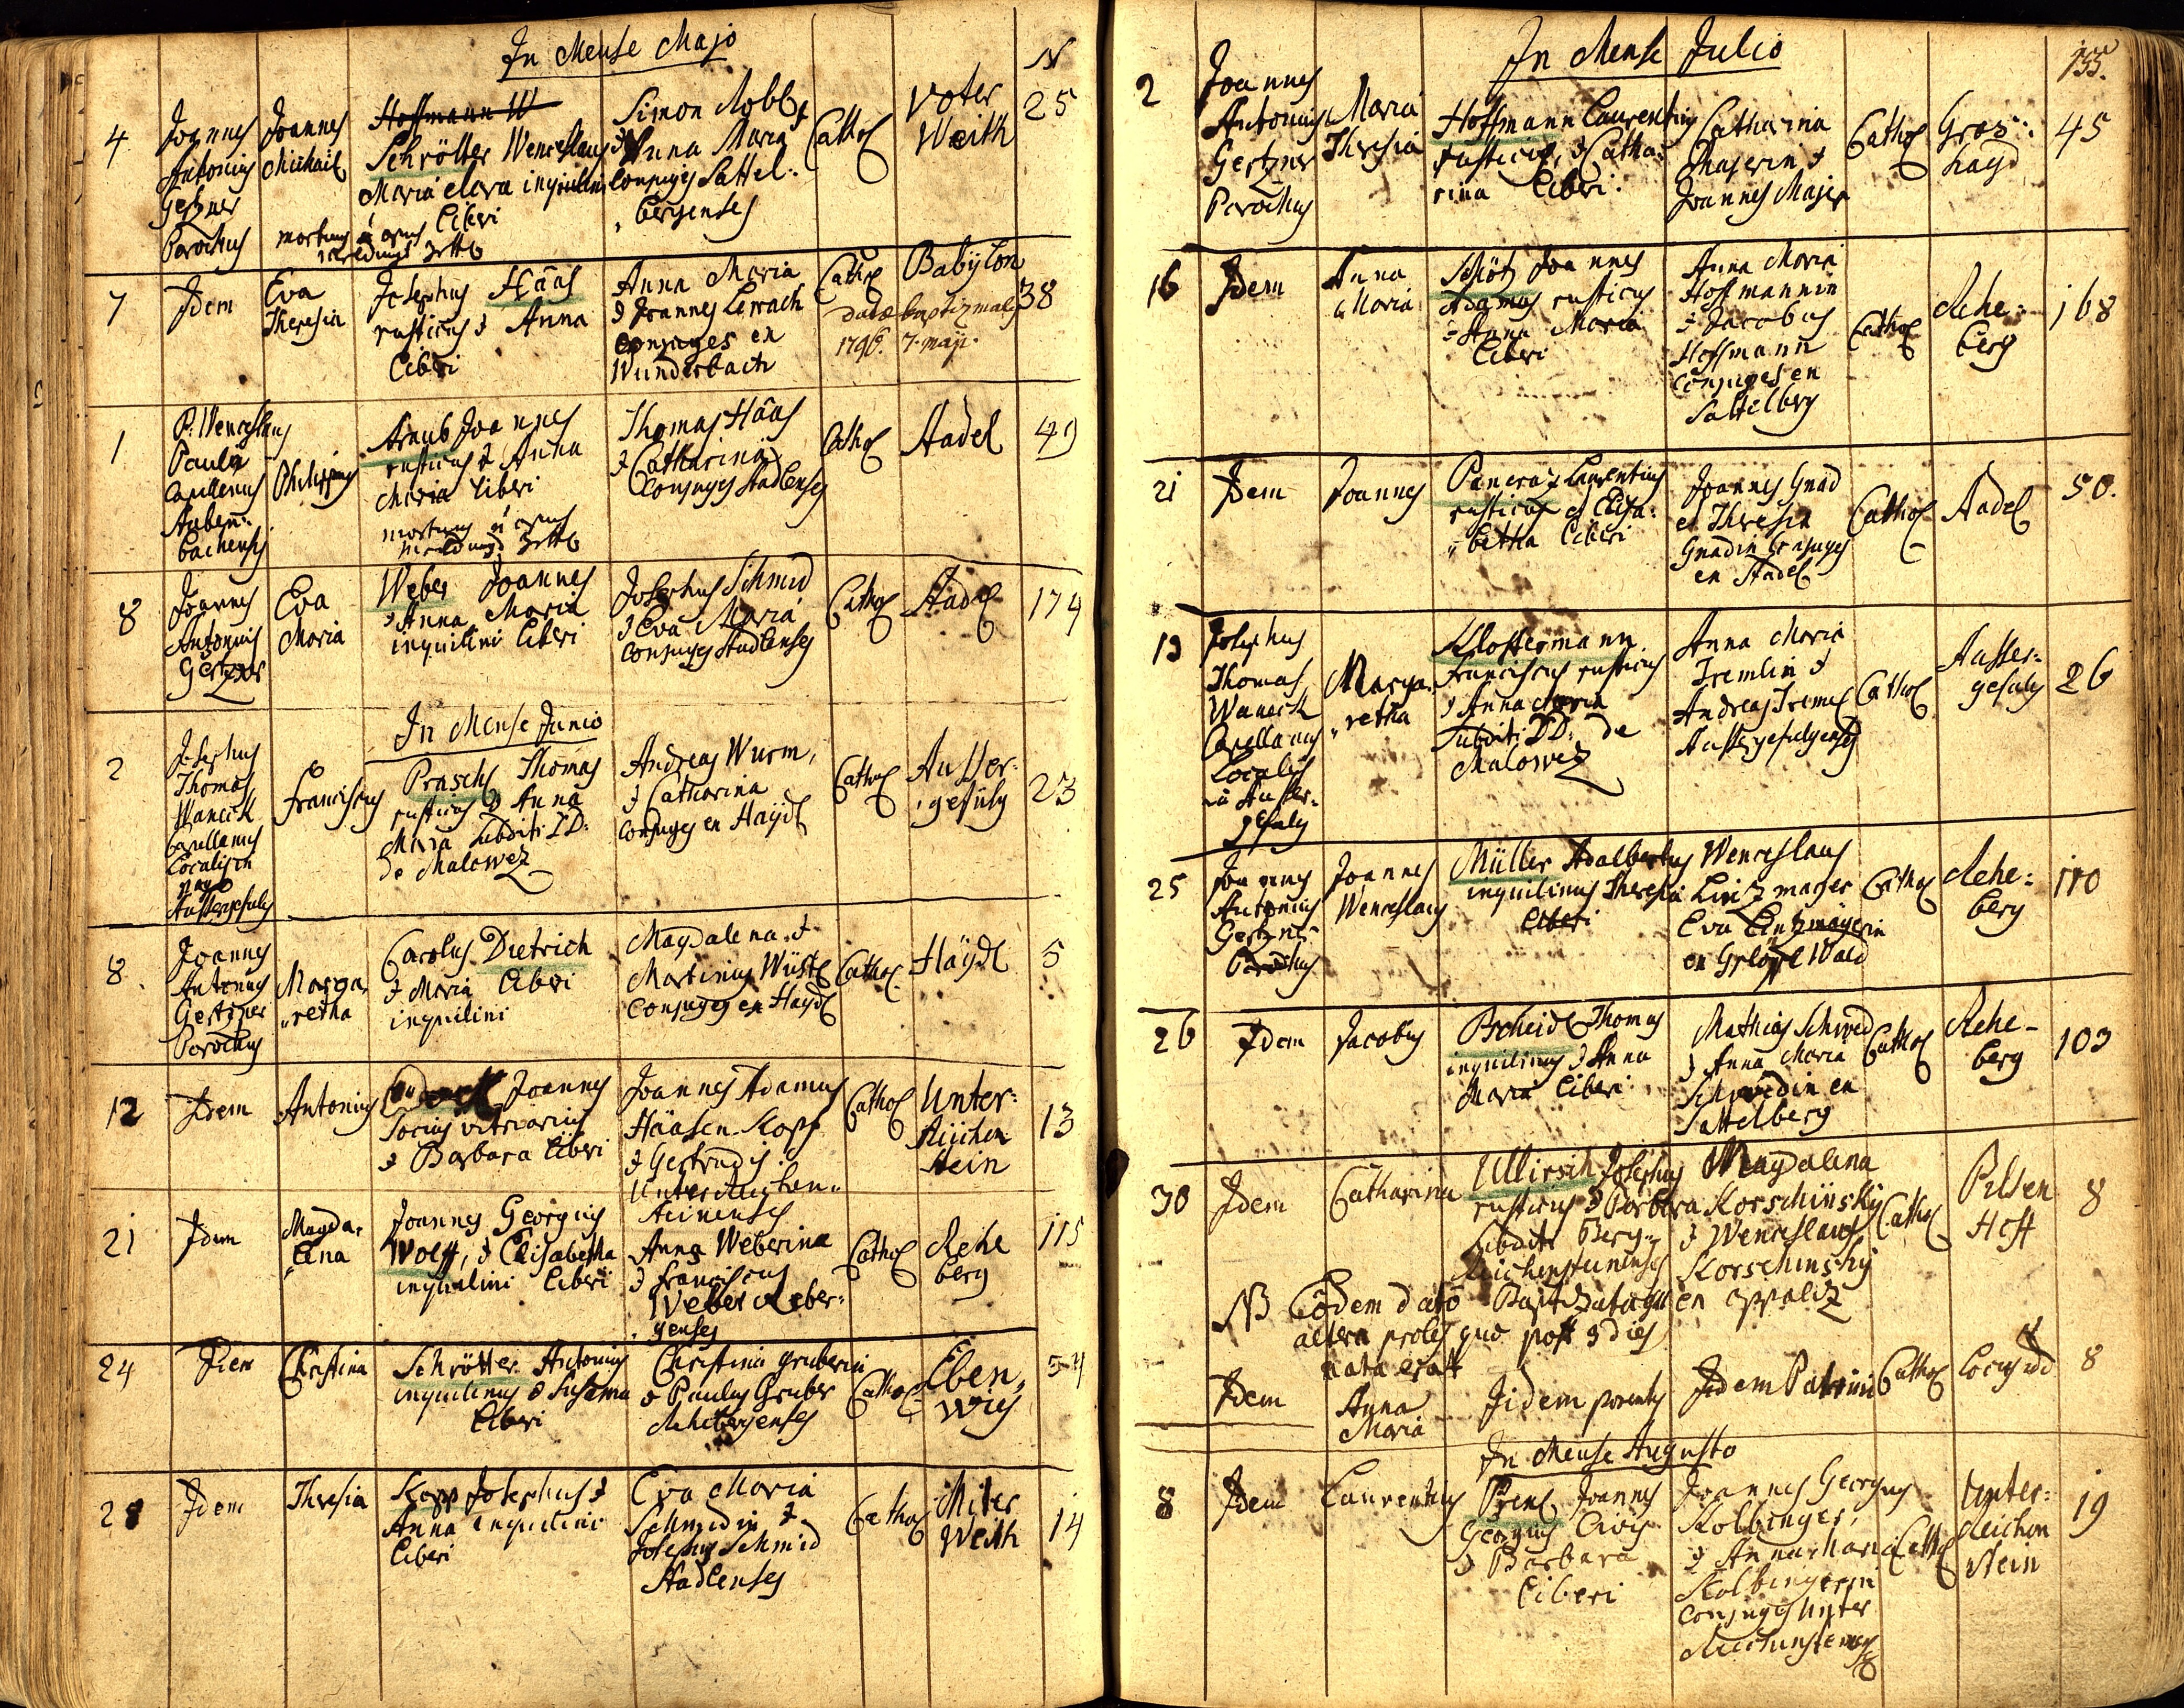 In Mense Majo
N
4
Joannes
Antonius
Gerzner
Parochus
Joannes
Michael
Hoffmann W
Schrötter Wenceslaus
Maria Clara inquilini
Liberi
Simon Kobl
& Anna Maria
Conjuges Sattel:
bergenses
Cathol
Voter
Weith
25
7
Idem
Eva
Theresia
Josephus Hääs
rusticus & Anna
Liberi
Anna Maria
& Joannes
conjuges en
Wunderbach
Cathol
Babylon
38
datae baptizmales
1796. 7. maji.
1
P. Wenceslaus
Paulg
Capellanus
Auben:
bachensis
Philippus
Joannes
rusticus & Anna
Maria Liberi
Thomas Hääs
& Catharina
Conjuges Stadlenses
Cathol
Stadel
49
8
Joannes
Antonius
Gerzner
Eva
Maria
Weber Joannes
& Anna Maria
inquilini Liberi
Josephus Schmid
& Eva Maria
conjuges Stadlenses
Cathol
Stadel
174
In Mense Junio
2
Josephus
Thomas
Waneck
Capellanus
Localis in
pago
Aussergefulg
Franciscus
Praschl Thomas
rusticus & Anna
Maria subditi DD:
de Malowez
Andreas Wurm,
& Catharina
conjuges en Haydl
Cathol
Ausser:
gefulg
23
8.
Joannes
Antonius
Gertzner
Parochus
Marga,
retha
Carolus Dietrich
& Maria Liberi
inquilini
Magdalena &
Martinus Wüstl
Conjuges en Haydl
Cathol.
Häydl
5
12
Idem
Antonius
Joannes
Socius vitriarius
& Barbara Liberi
Joannes Adamus
Hääsen Kopf
& Gertrudis
Unter
steinenses
Cathol
Unter:
Reichen
stein
13
21
Idem
Magda,
lena
Joannes Georgius
Wolff, & Elisabetha
inquilini Liberi
Anna Weberina
& Franciscus
Weber Reber:
genses
Cathol
Rehe
berg
115
24
Idem
Christina
Schrötter Antonius
inquilinus & Susanna
Liberi
Christina Gruberin
& Paulus Gruber
Rehebergenses
Cathol
Eben,
Wies
54
28
Idem
Theresia
Kopp Josephus &
Anna inquilini
Liberi
Eva Maria
Schmidin &
Josephus Schmid
Stadlenses
Cathol
Miter
Weith
14
In Mense Julio
155.
2
Joannes
Antonius
Gertzner
Parochus
Maria
Theresia
Hoffmann Laurentius
rusticus, & Catha:
rina Liberi.
Catharina
Majerin &
Joannes Majer
Cathol
Gros:
hayd
45
16
Idem
Anna
Maria
Schötz Joannes
Adamus rusticus
& Anna Maria
Liberi
Anna Maria
Hoffmannin
& Jacobus
Hoffmann
Conjuges en
Sattelberg
Cathol
Rehe:
berg
168
21
Idem
Joannes
Pancraz Laurentius
rusticus et Elisa:
betha Liberi
Joannes Gnad
et Theresia
Gnadin Conjuges
en Stadel
Cathol
Stadel
50.
13
Josephus
Thomas
Waneck
Capellanus
Localis
in Ausser:
gefulg
Marga:
retha
Klostermann
Franciscus rusticus
& Anna Maria
Subditi DD: de
Malowez
Anna Maria
Tremlin &
Andreas Treml
Aussergefulgenses
Cathol
Ausser:
gefulg
26
25
Joannes
Antonius
Gertzner
Parochus
Joannes
Wenceslaus
Müller Adalbertus
inquilinus Theresia
Liberi
Wenceslaus
Linzmayer
Eva Lintzmayerin
Wald
Cathol
Rehe:
berg
110
26
Idem
Jacobus
Pscheidl Thomas
inquilinus & Anna
Maria Liberi
Mathias Schmid
& Anna Maria
Schmidin en
Sattelberg
Cathol
Rehe-
berg
103
30
Idem
Catharina
Ullirsch Josephus
rusticus & Barbara
Subditi Berg:
Reichensteinenses
Magdalena
Korschinsky
& Wenceslaus
Korschinsky
en
Cathol
Pilsen
Hoff
8
NB Eodem dato Baptizata
altera proles quo post 9 dies
nata erat
Idem
Anna
Maria
Iidem parentes
Iidem Patrini
Cathol
Locus idem
8
In Mense Augusto
8
Idem
Laurentius
Joannes
Georgius Civis
& Barbara
Liberi
Joannes Georgius
Kolbinger,
& Anna Maria
Kolbingerin
conjuges Unter
Reichensteinenses
Cathol
Unter:
Reichen
stein
19